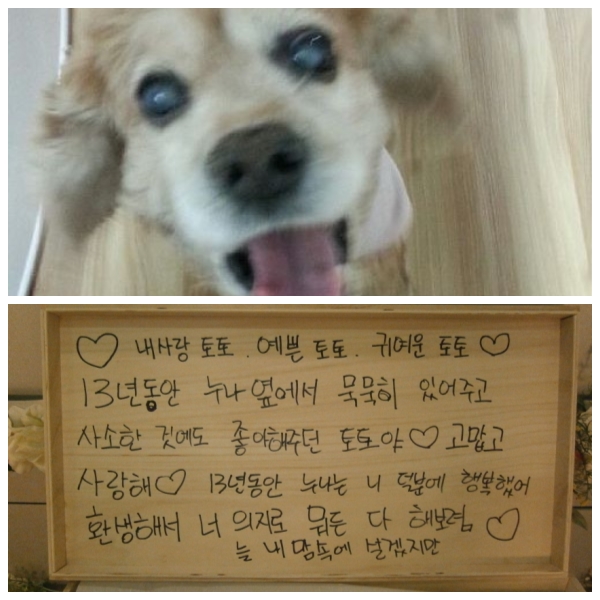 ♡ 내사랑 토토. 예쁜 토토. 귀여운 토토 ♡
13년동안 누나 옆에서 묵묵히 있어주고
사소한 것에도 좋아해주던 토토야 ♡ 고맙고
사랑해 ♡ 13년동안 누나는 니 덕분에 행복했어
환생해서 너 의지로 뭐든 다 해보렴 ♡
늘 내 맘속에 살겠지만